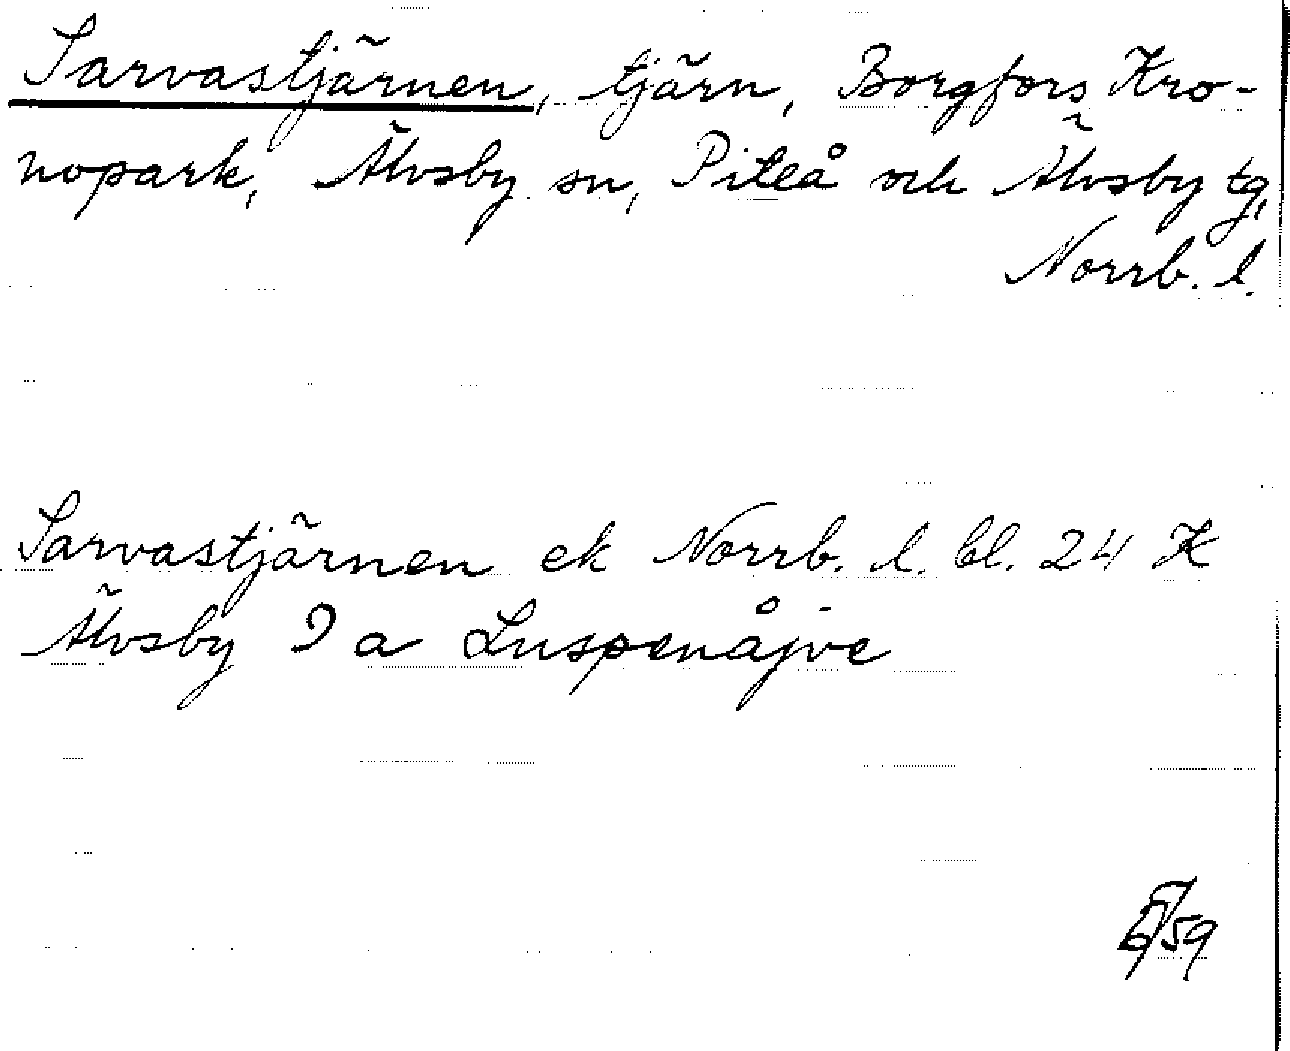 Sarvastjärnen, tjärn, Borgfors Kro-
nopark, Älvsby sn, Piteå och Älvsby tg,
Norrb. l.
Sarvastjärnen ek Norrb. l. bl. 24 K
Älvsby 9 a Luspenåjve
59